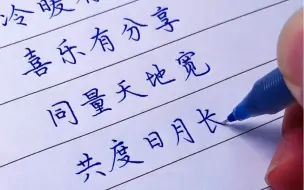 冷暖有
喜乐有分享
同量天地宽
共度日月长